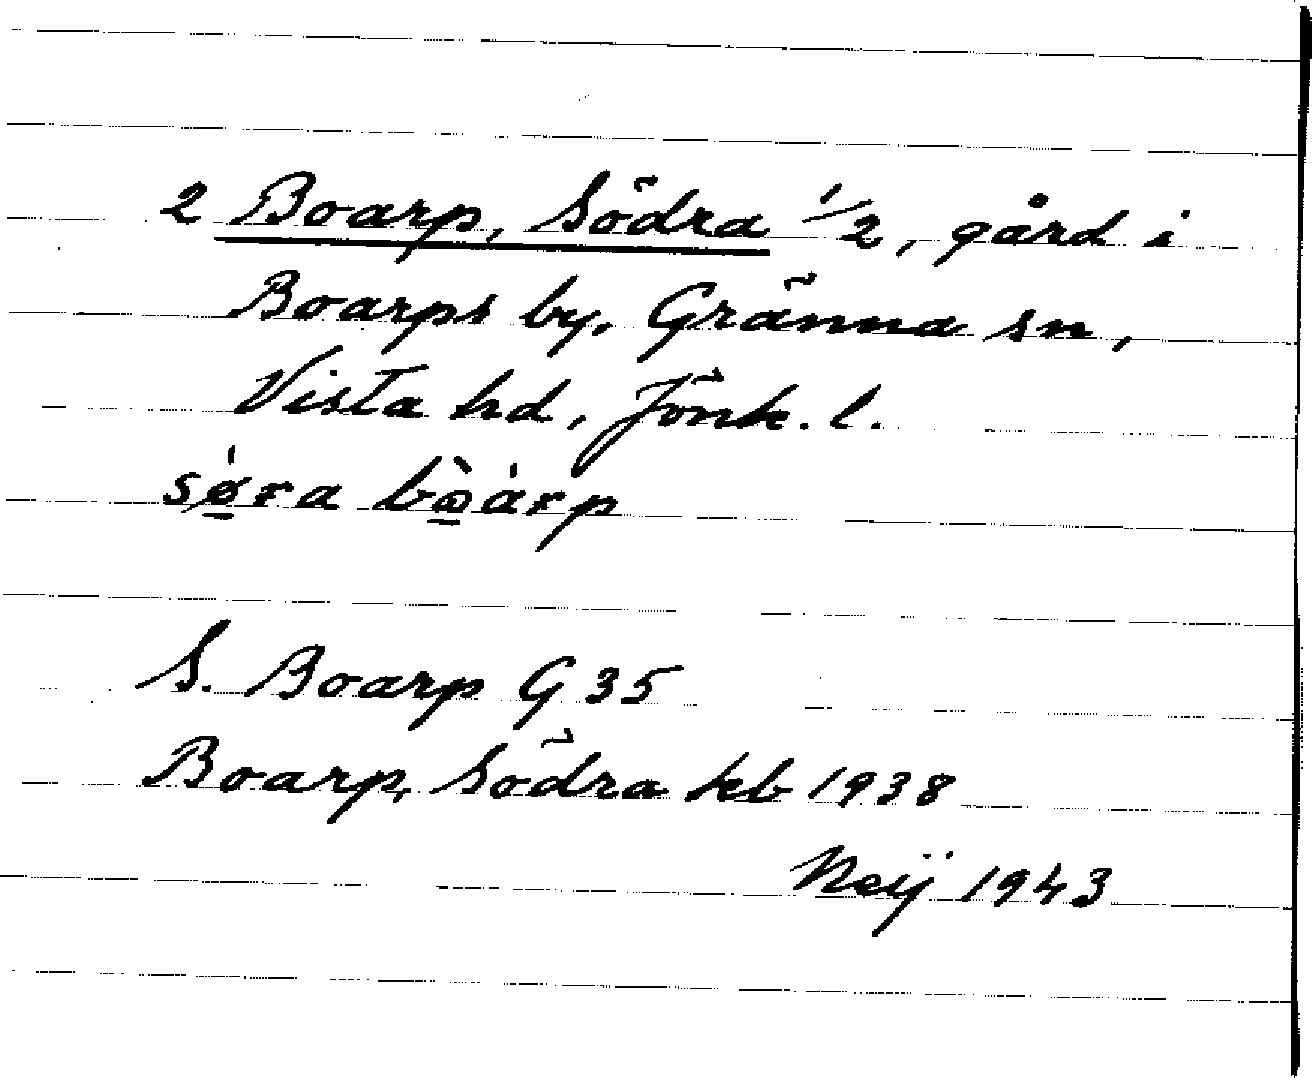 2 Boarp, Södra 1/2, gård i
Boarps by, Gränna sn,
Vista hd, Jönk. l.
S. Boarp G 35
Boarp, Södra kb 1938
Neij 1943